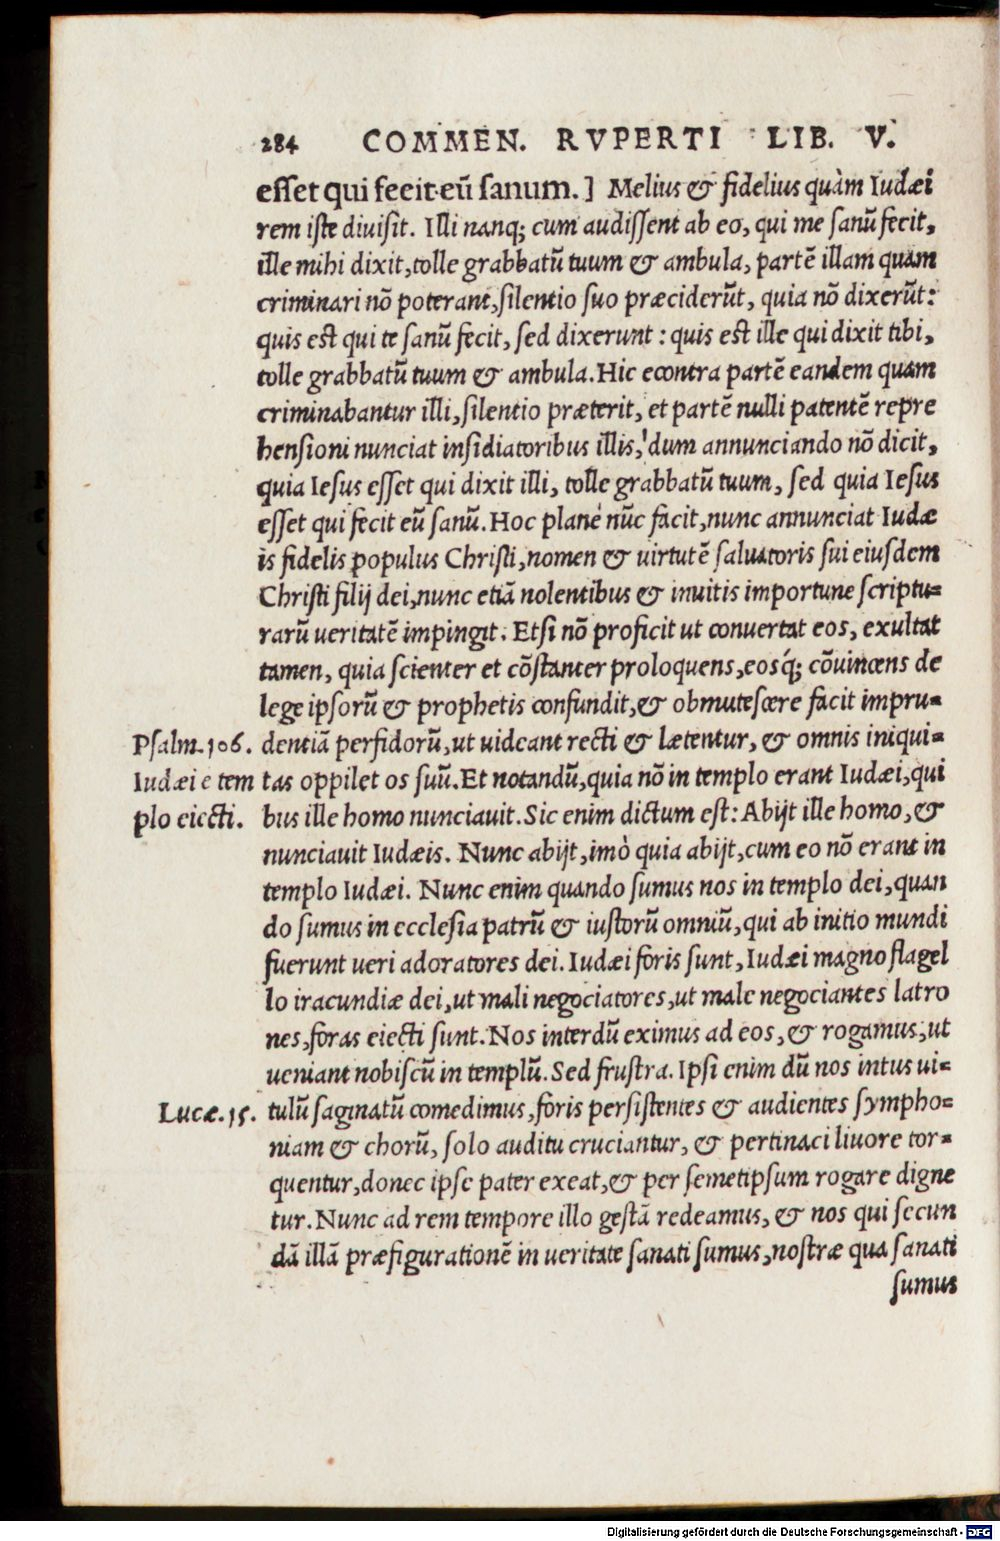 284 COMMEN. RVPERTI LIB. V.
esset qui fecit eũ sanum.] Melius & fidelius quàm Iudæi
rem iste diuisit. Illi nanq; cum audissent ab eo, qui me sanũ fecit,
ille mihi dixit, tolle grabbatũ tuum & ambula, partẽ illam quam
criminari nõ poterant, silentio suo præciderũt, quia nõ dixerũt:
quis est qui te sanũ fecit, sed dixerunt: quis est ille qui dixit tibi,
tolle grabbatũ tuum & ambula. Hic econtra partẽ eandem quam
criminabantur illi, silentio præterit, et partẽ nulli patentẽ repre
hensioni nunciat insidiatoribus illis, dum annunciando nõ dicit,
quia Iesus esset qui dixit illi, tolle grabbatũ tuum, sed quia Iesus
esset qui fecit eũ sanũ. Hoc planè nũc facit, nunc annunciat Iudæ
is fidelis populus Christi, nomen & uirtutẽ saluatoris sui eiusdem
Christi filij dei, nunc etiã nolentibus & inuitis importune scriptu=
rarũ ueritatẽ impingit. Etsi nõ proficit ut conuertat eos, exultat
tamen, quia scienter et cõstanter proloquens, eosq́; cõuincens de
lege ipsorũ & prophetis confundit, & obmutescere facit impru=
Psalm.106. dentiã perfidorũ, ut uideant recti & lætentur, & omnis iniqui=
Iudæi e tem tas oppilet os suũ. Et notandũ, quia nõ in templo erant Iudæi, qui
plo eiecti. bus ille homo nunciauit. Sic enim dictum est: Abijt ille homo, &
nunciauit Iudæis. Nunc abijt, imò quia abijt, cum eo nõ erant in
templo Iudæi. Nunc enim quando sumus nos in templo dei, quan
do sumus in ecclesia patrũ & iustorũ omniũ, qui ab initio mundi
fuerunt ueri adoratores dei. Iudæi foris sunt, Iudæi magno flagel
lo iracundiæ dei, ut mali negociatores, ut male negociantes latro
nes, foras eiecti sunt. Nos interdũ eximus ad eos, & rogamus, ut
ueniant nobiscũ in templũ. Sed frustra. Ipsi enim dũ nos intus ui=
Lucæ.15. tulũ saginatũ comedimus, foris persistentes & audientes sympho=
niam & chorũ, solo auditu cruciantur, & pertinaci liuore tor=
quentur, donec ipse pater exeat, & per semetipsum rogare digne
tur. Nunc ad rem tempore illo gestã redeamus, & nos qui secun
dã illã præfigurationẽ in ueritate sanati sumus, nostræ qua sanati
sumus
Digitalisierung gefördert durch die Deutsche Forschungsgemeinschaft - DFG